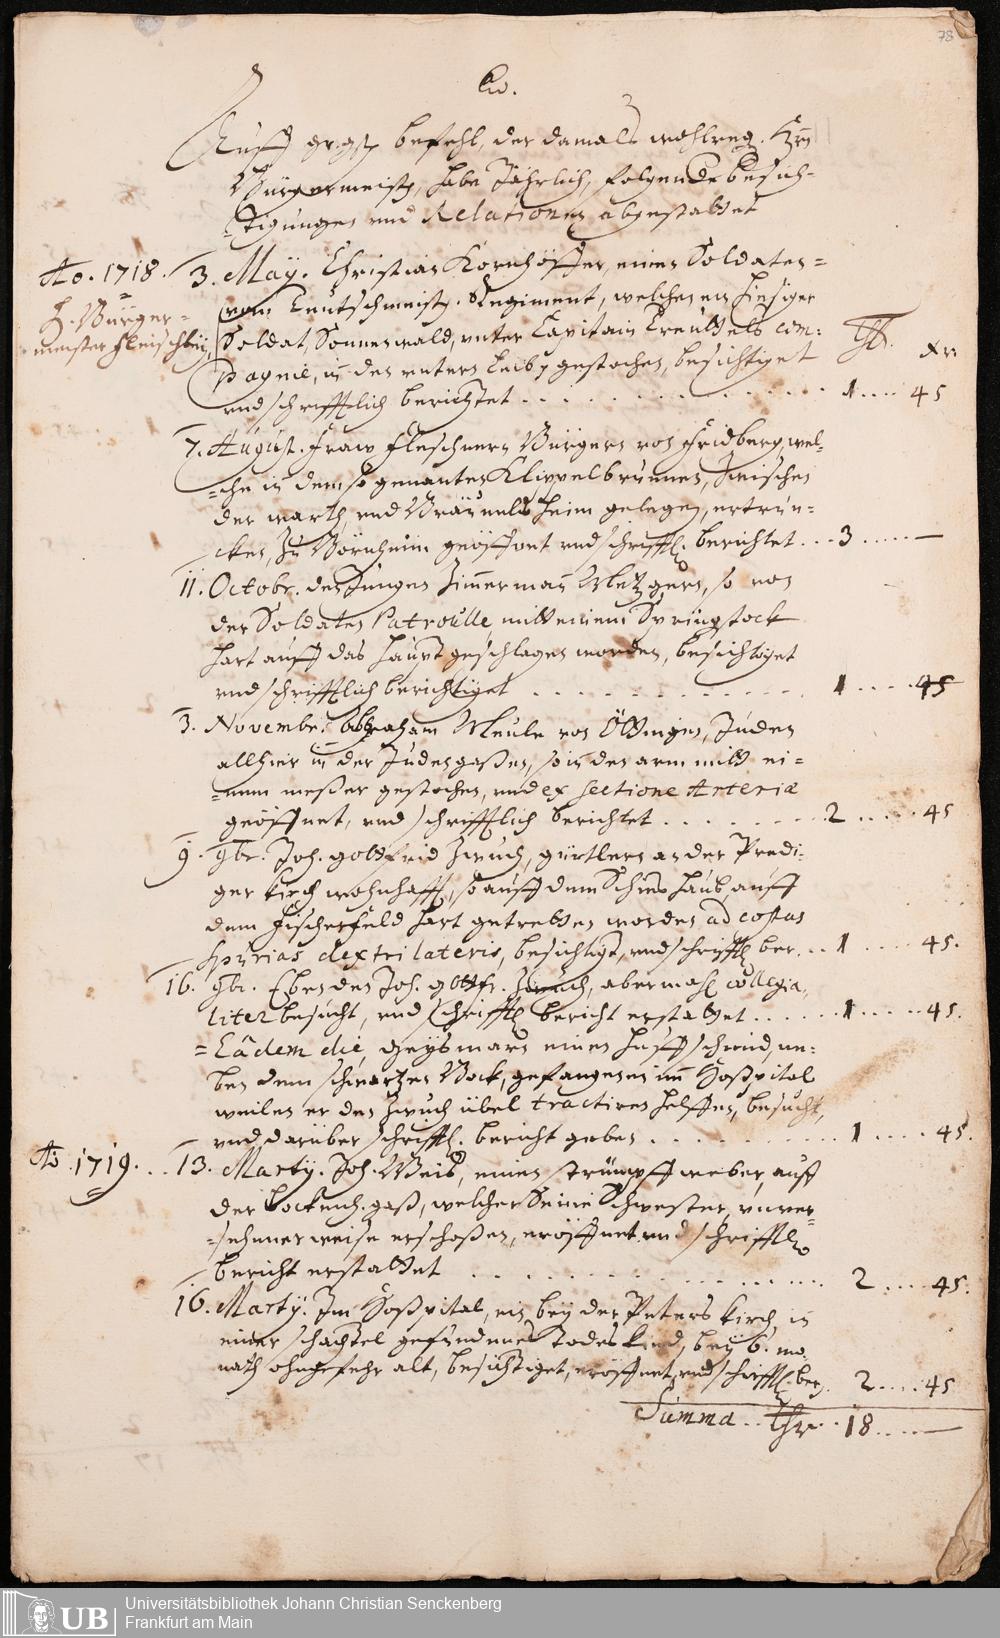 78
Auff befehl, der damals wohlreg. Hrn
Bürgermeistr, habe Jährlich, folgende besich-
tigungen und Relationen abgestattet
Ao. 1718. 3. May. Christian Kornhöffer, einen Soldaten
H. Bürger-
meister Fleischbein
vom Teutschmeistr. Regiment, welchen ein hiesiger
Soldat, Sonnenwald, unter Capitain Treuttels com-
pagnie, in den untern Leib gestochen, besichtiget
und schrifftlich berichtet . . . 1 .... 45
Xr
7. August. Fraw Fleschnern Bürgers von Fridberg, wel-
che in dem so genanten Klippelbrunnen, zwischen
der warth, und Bräunels heim gelegen, ertrun-
cken, zu Bornheim geöffnet und schrifftl. berichtet ... 3 .... —
11. Octobr. den Jungen Zimmerman Metzgern, so von
der Soldaten Patroulle, mitt einem Springstock
hart auff das haupt geschlagen worden, besichtiget
und schrifftlich berichtiget . . . 1 .... 45
3. Novembr. Abraham Meule von Öttingen, Juden
allhier in der Judengaßen, so in den arm mitt ei-
nem meßer gestochen, und ex sectione Arteriæ
geöffnet, und schrifftlich berichtet . . . 2 .... 45
9. 9br. Joh. Gottfrid Zwuch, gürtlern an der Predi-
ger Kirch wohnhafft, so auff dem Schies hauß, auff
dem Fischerfeld hart getretten worden ad costas
spurias dextri lateris, besichtigt, und schrifftl ber. . . 1 .... 45.
16. 9br. Eben den Joh. Gottfr. Zwuch, abermahl collegia-
liter besucht, und schrifftl bericht erstattet . . . 1 .... 45.
= Eâdem die, Geysmarn einen huffschmid, ne-
ben dem schwartzen Bock, gefangenen im Hoßpital
weilen er den Zwuch übel tractiren helffen, besucht,
und darüber schrifftl. bericht geben . . . 1 .... 45.
Ao 1719. .. 13. Martÿ. Joh. Weis, einen strümpff weber, auff
der Bockenh. gaß, welcher Seine Schwester, unver-
sehener weise erschoßen, eröffnet und schrifftl
bericht erstattet . . . 2 .... 45.
16. Martÿ. Im Hoßpital, ein beÿ der Peters kirch, in
einer schachtel gefundenes todes kind, beÿ 6. mo-
nath ohngefehr alt, besichtiget, eröffnet, und schrifftl. ber. 2 .... 45
Summa .. Thr .. 18 .... —
UB
Universitätsbibliothek Johann Christian Senckenberg
Frankfurt am Main